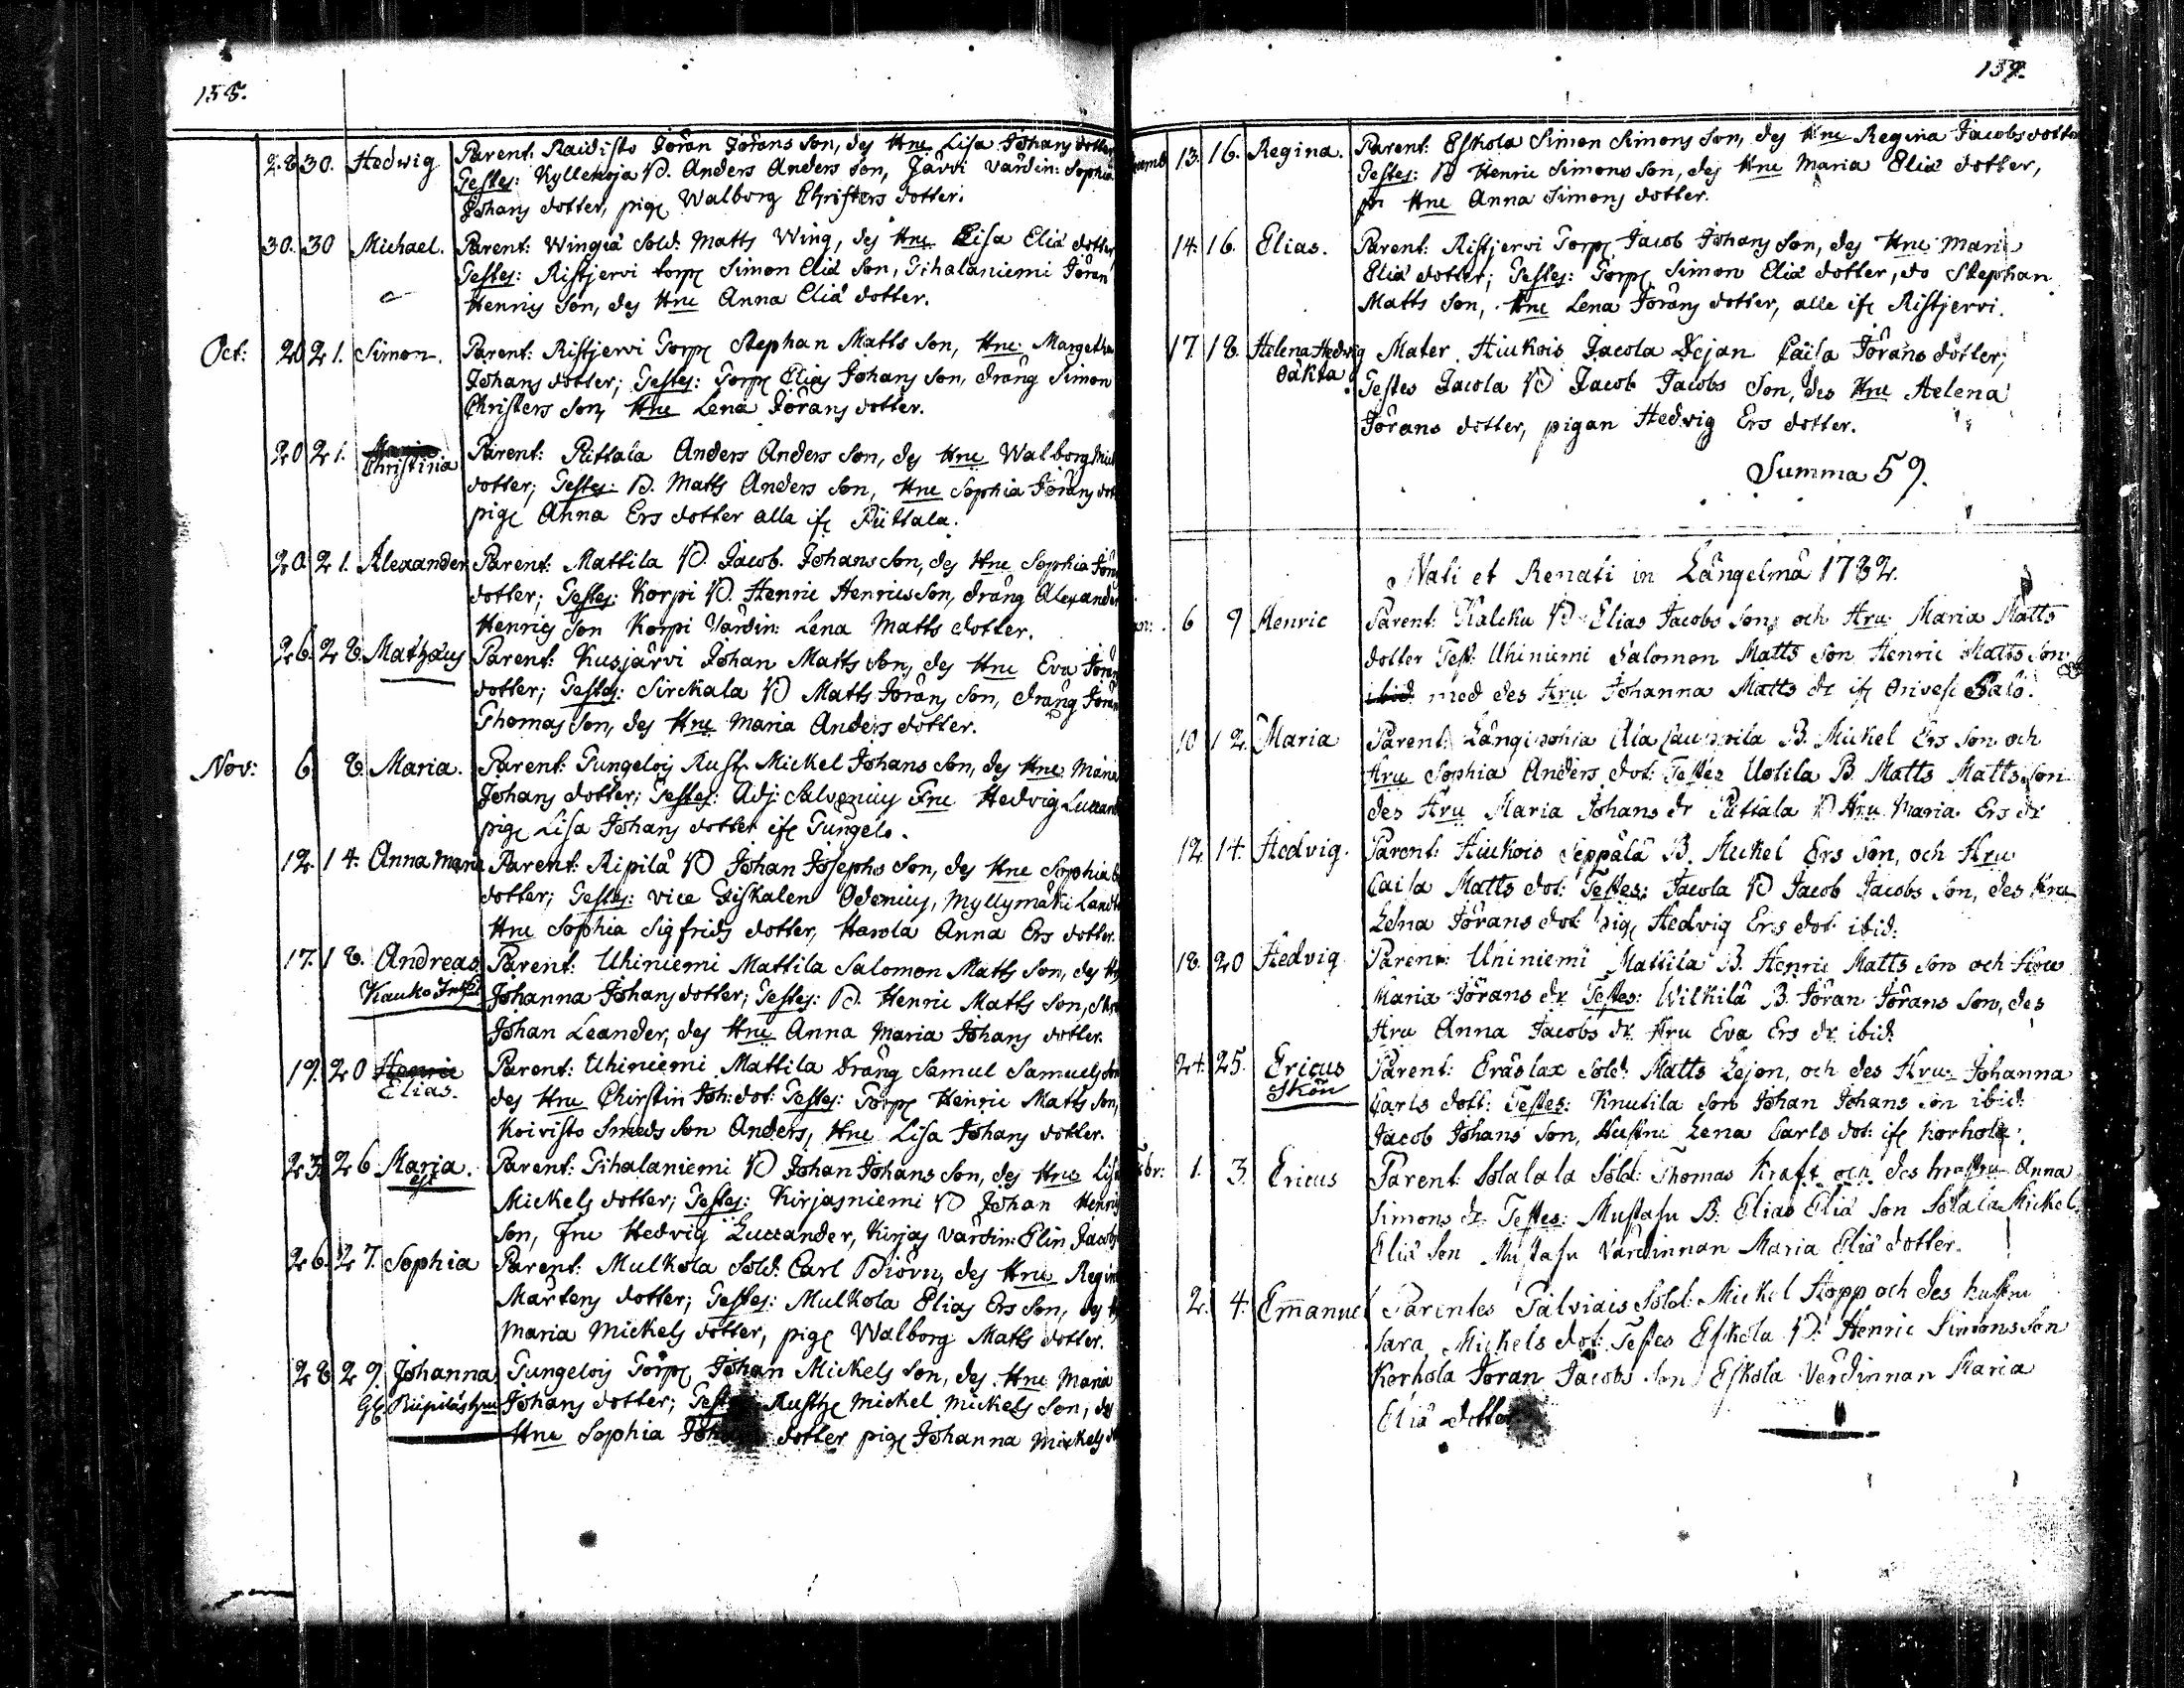 158.
28 30. Hedwig Parent: Raidisto Jöran Jörans Son, des Hru Lisa Johans dotter
Testes: Kylleiioja B. Anders Anders Son, Järvi värdin: Sophia
Johans dotter, pig Walborg Christers dotter.
30. 30 Michael. Parent: Wingiä Sold: Matts Wing, des Hru Lisa Eliä dotter,
Testes: Ristjervi torp Simon Eliä Son, Pihalaniemi Jöran
Henrics Son, des Hru Anna Eliä dotter.
Oct: 20 21. Simon. Parent: Ristjervi Torp Stephan Matts Son, Hru Margetha
Johans dotter; Testes: Torp Elias Johans Son, dräng Simon
Christers Son, Hru Lena Jörans dotter.
20 21. Christina Parent: Pittala Anders Anders Son, des Hru Walborg Mick
dotter; Testes: B. Matts Anders Son, Hru Sophia Jörans dot
pig Anna Ers dotter alla if Püttala.
20. 21. Alexander Parent: Mattila B. Jacob Johans Son, des Hru Sophia Jöra
dotter; Testes: Korpi B. Henric Henrics Son, dräng Alexander
Henrics Son Korpi Värdin: Lena Matts dotter.
26. 28. Mathæus Parent: Kusjärvi Johan Matts Son, des Hru Eva Jöran
dotter; Testes: Sirckala B Matts Jörans Son, dräng Jöran
Thomas Son, des Hru Maria Anders dotter.
Nov: 6. 8. Maria. Parent: Tungelois Rusth Mickel Johans Son, des Hru Maria
Johans dotter; Testes: Adj: Salvenius Fru Hedvig Lucand
pig Lisa Johans dotter if Tungelo.
12. 14. Anna Maria Parent: Ripilä B Johan Josephs Son, des Hru Sophia
dotter; Testes: vice Fiskalen Odenius, Myllymäki Landb
Hru Sophia Sigfrids dotter, Harola Anna Ers dotter.
17. 18. Andreas Parent: Uhiniemi Mattila Salomon Matts Son, des H
Kauko Johanna Johans dotter; Testes: B. Henric Matts Son,
Johan Leander, des Hru Anna Maria Johans dotter.
19. 20 Henric Parent: Uhiniemi Mattila Dräng Samuel Samuels Son
Elias. des Hru Christin Joh: dot: Testes: Torp Henric Matts Son,
Koivisto Smeds Son Anders, Hru Lisa Johans dotter.
23. 26 Maria. Parent: Pihalaniemi B Johan Johans Son, des Hru Lisa
Mickels dotter; Testes: Kirjasniemi B Johan Henrics
Son, Fru Hedvig Lucander, Kirjas Värdin: Elin Jacobs
26. 27. Sophia Parent: Mulkola Sold: Carl Biörn, des Hru Regin
Mårtens dotter; Testes: Mulkola Elias Ers Son, des H
Maria Mickels dotter, pig Walborg Matts dotter.
28 29. Johanna Tungelois Torp Johan Mickels Son, des Hru Maria
Johans dotter; Test Rusth Mickel Mickels Son, des
Hru Sophia Joh dotter pig Johanna Mickels d
159.
13. 16. Regina. Parent: Eskola Simon Simons Son, des Hru Regina Jacobs dotter
Testes: B Henric Simons Son, des Hru Maria Eliä dotter,
Hru Anna Simons dotter.
14. 16. Elias. Parent: Ristjervi Torp Jacob Johans Son, des Hru Maria
Eliä dotter; Testes: Torp Simon Eliä dotter, do Stephan
Matts Son, Hru Lena Jörans dotter, alle if Ristjervi.
17. 18. Helena Hedvig Mater Hiukois Jacola Pejan Caisa Jörans dotter;
oäkta. Testes Jacola B Jacob Jacobs Son, des Hru Helena
Jörans dotter, pigan Hedvig Ers dotter.
Summa 59.
Nati et Renati in Längelmä 1782.
6 9 Henric Parent: Kalcku B Elias Jacobs Son, och Hru Maria Matts
dotter Test: Uhiniemi Salomon Matts Son Henric Matts Son
ibid med des Hru Johanna Matts dr if Orivesi Salo.
10 12 Maria Parent: Längipohia B. Mickel Ers Son och
Hru Sophia Anders dot: Testes Uotila B. Matts Matts Son
des Hru Maria Johans dr Püttala B Hru Maria Ers dr
12. 14. Hedvig. Parent: Hiukois Seppälä B. Mickel Ers Son, och Hru
Caisa Matts dot: Testes: Jacola B Jacob Jacobs Son, des Hru
Lena Jörans dot pig Hedvig Ers dot ibid.
18. 20 Hedvig Parent: Uhiniemi Mattila B. Henric Matts Son och Hru
Maria Jörans dr Testes: Wilkilä B. Jöran Jörans Son, des
Hru Anna Jacobs dr Hru Eva Ers dr ibid:
24. 25. Ericus Parent: Eräslax Sold: Matts Lejon, och des Hru Johanna
Skön Carls dott: Testes: Knutila Son Johan Johans Son ibid:
Jacob Johans Son, Hustru Lena Carls dot: if Korhola.
Fbr: 1. 3. Ericus Parent: Solalala Sold: Thomas Kraft och des hustru Anna
Simons dr Testes: Mustasu B: Elias Eliä Son Solala Mickel
Eliä Son Mustasu Värdinnan Maria Eliä dotter.
2. 4. Emanuel Parentes Talviais Sold: Mickel Stopp och des hustru
Sara Mickels dot: Testes Eskola B. Henric Simons Son
Korhola Jöran Jacobs Son Eskola Värdinnan Maria
Eliä dotter